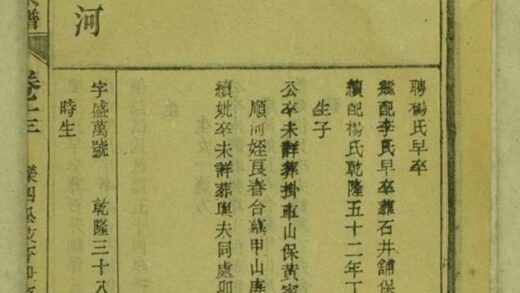 聘楊氏早卒
配李氏早卒葬石井舖保
續配楊氏乾隆五十二年丁
生子
公卒未詳葬掛車山保黃家
順河姪良春台墓甲山庚
續妣卒未詳葬與夫同處卯
河
字盛萬號 乾隆三十八
時生
譜
卷十三